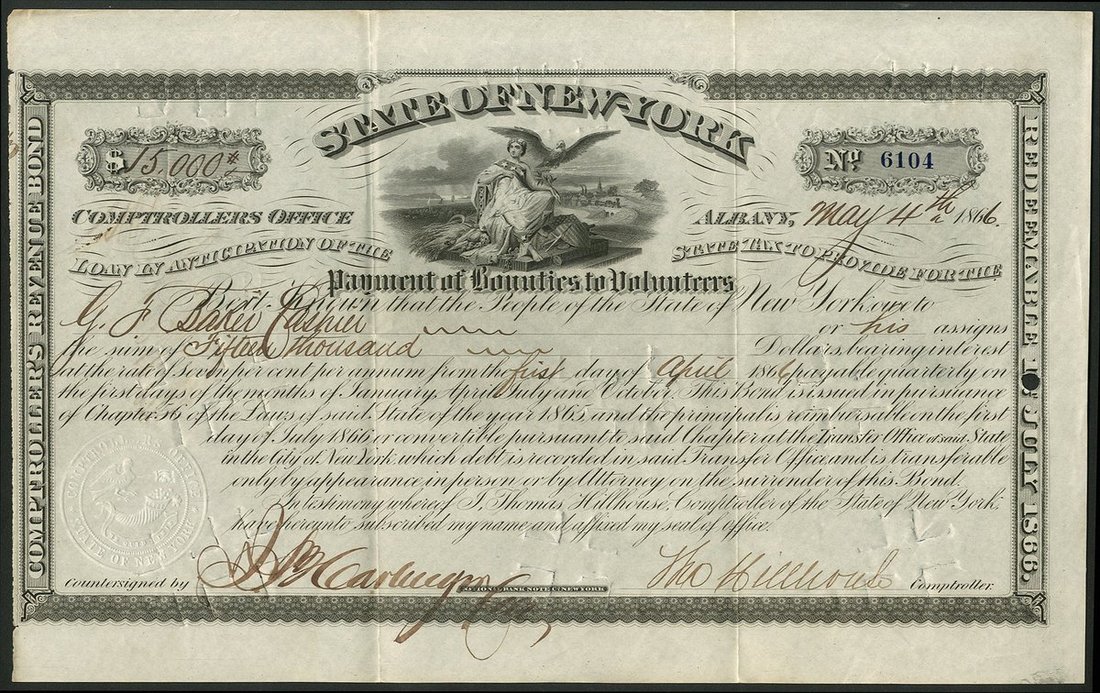 STATE OF NEW-YORK
$15,000
No 6104
COMPTROLLERS OFFICE
ALBANY, May 4th 1866.
LOAN IN ANTICIPATION OF THE STATE TAX TO PROVIDE FOR THE
Payment of Bounties to Volunteers
Be it Known that the People of the State of New York owe to
G. F Baker Cashier or his assigns
the sum of Fifteen thousand Dollars, bearing interest
at the rate of Seven per cent per annum from the first day of April 1866 payable quarterly on
the first days of the months of January, April, July and October. This Bond is issued in pursuance
of Chapter 56 of the Laws of said State of the year 1865 and the principal is reimbursable on the first
day of July 1866 or convertible pursuant to said Chapter at the Transfer Office of said State
in the City of New York, which debt is recorded in said Transfer Office and is transferable
only by appearance in person or by Attorney on the surrender of this Bond.
In testimony whereof I, Thomas Hillhouse, Comptroller of the State of New York,
have hereunto subscribed my name and affixed my seal of office.
Countersigned by
Tho Hillhouse Comptroller.
NATIONAL BANK NOTE CO. NEW YORK
COMPTROLLERS REVENUE BOND
REDEEMABLE 1 JULY 1866.
COMPTROLLERS OFFICE
STATE OF NEW YORK